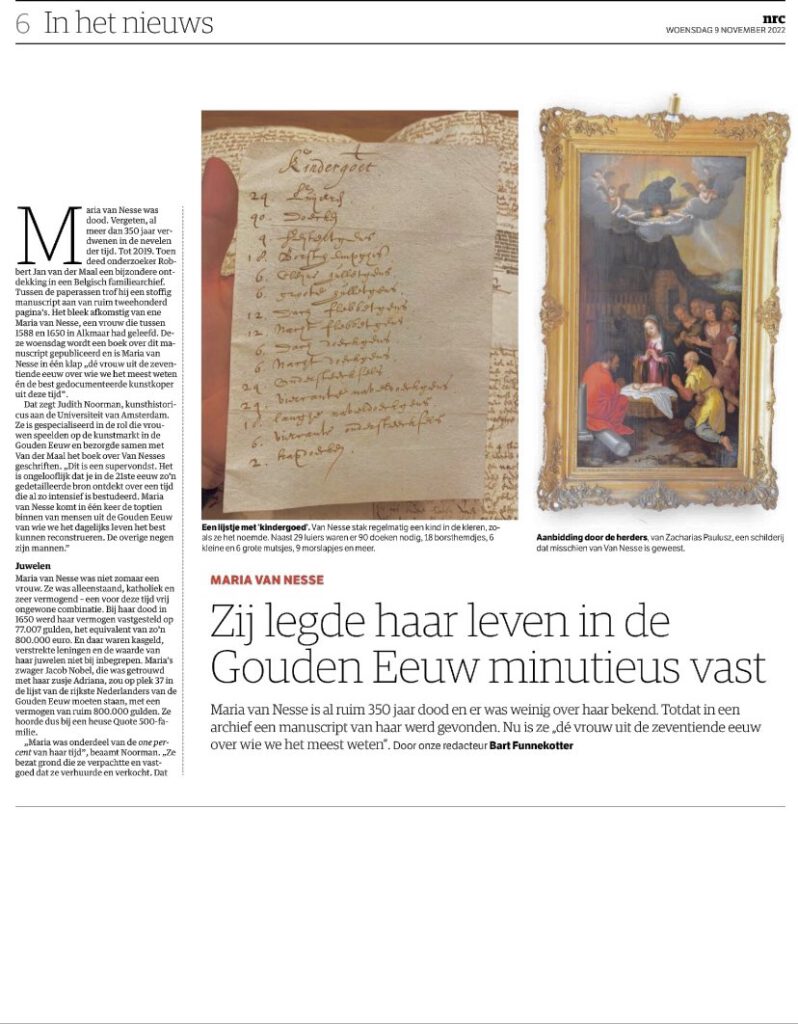 6 In het nieuws
nrc
WOENSDAG 9 NOVEMBER 2022
Kindergoet
29
90
9
18
6
6 groote
12
12
6
6
29
29
10
6
2
Een lijstje met 'kindergoed'. Van Nesse stak regelmatig een kind in de kleren, zo-
als ze het noemde. Naast 29 luiers waren er 90 doeken nodig, 18 borsthemdjes, 6
kleine en 6 grote mutsjes, 9 morslapjes en meer.
Aanbidding door de herders, van Zacharias Paulusz, een schilderij
dat misschien van Van Nesse is geweest.
MARIA VAN NESSE
Zij legde haar leven in de
Gouden Eeuw minutieus vast
Maria van Nesse is al ruim 350 jaar dood en er was weinig over haar bekend. Totdat in een
archief een manuscript van haar werd gevonden. Nu is ze „dé vrouw uit de zeventiende eeuw
over wie we het meest weten”. Door onze redacteur Bart Funnekotter
Maria van Nesse was
dood. Vergeten, al
meer dan 350 jaar ver-
dwenen in de nevelen
der tijd. Tot 2019. Toen
deed onderzoeker Rob-
bert Jan van der Maal een bijzondere ont-
dekking in een Belgisch familiearchief.
Tussen de paperassen trof hij een stoffig
manuscript aan van ruim tweehonderd
pagina's. Het bleek afkomstig van ene
Maria van Nesse, een vrouw die tussen
1588 en 1650 in Alkmaar had geleefd. De-
ze woensdag wordt een boek over dit ma-
nuscript gepubliceerd en is Maria van
Nesse in één klap „dé vrouw uit de zeven-
tiende eeuw over wie we het meest weten
én de best gedocumenteerde kunstkoper
uit deze tijd”.
Dat zegt Judith Noorman, kunsthistori-
cus aan de Universiteit van Amsterdam.
Ze is gespecialiseerd in de rol die vrou-
wen speelden op de kunstmarkt in de
Gouden Eeuw en bezorgde samen met
Van der Maal het boek over Van Nesses
geschriften. „Dit is een supervondst. Het
is ongelooflijk dat je in de 21ste eeuw zo'n
gedetailleerde bron ontdekt over een tijd
die al zo intensief is bestudeerd. Maria
van Nesse komt in één keer de toptien
binnen van mensen uit de Gouden Eeuw
van wie we het dagelijks leven het best
kunnen reconstrueren. De overige negen
zijn mannen.”
Juwelen
Maria van Nesse was niet zomaar een
vrouw. Ze was alleenstaand, katholiek en
zeer vermogend – een voor deze tijd vrij
ongewone combinatie. Bij haar dood in
1650 werd haar vermogen vastgesteld op
77.007 gulden, het equivalent van zo'n
800.000 euro. En daar waren kasgeld,
verstrekte leningen en de waarde van
haar juwelen niet bij inbegrepen. Maria's
zwager Jacob Nobel, die was getrouwd
met haar zusje Adriana, zou op plek 37 in
de lijst van de rijkste Nederlanders van de
Gouden Eeuw moeten staan, met een
vermogen van ruim 800.000 gulden. Ze
hoorde dus bij een heuse Quote 500-fa-
milie.
„Maria was onderdeel van de one per-
cent van haar tijd”, beaamt Noorman. „Ze
bezat grond die ze verpachtte en vast-
goed dat ze verhuurde en verkocht. Dat